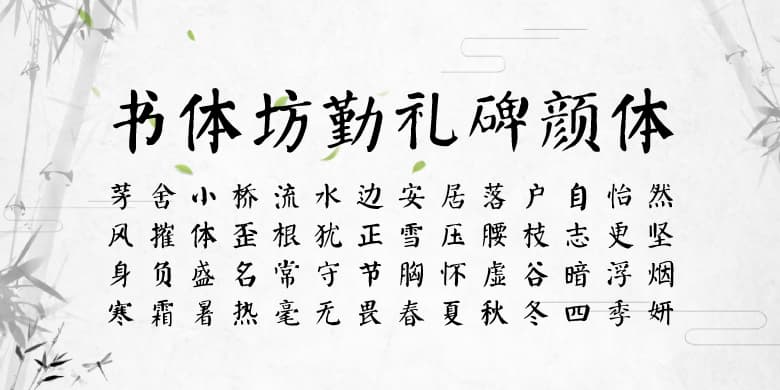 书体坊勤礼碑颜体
茅舍小桥流水边安居落户自怡然
风摧体歪根犹正雪压腰枝志更坚
身负盛名常守节胸怀虚谷暗浮烟
寒霜暑热毫无畏春夏秋冬四季妍